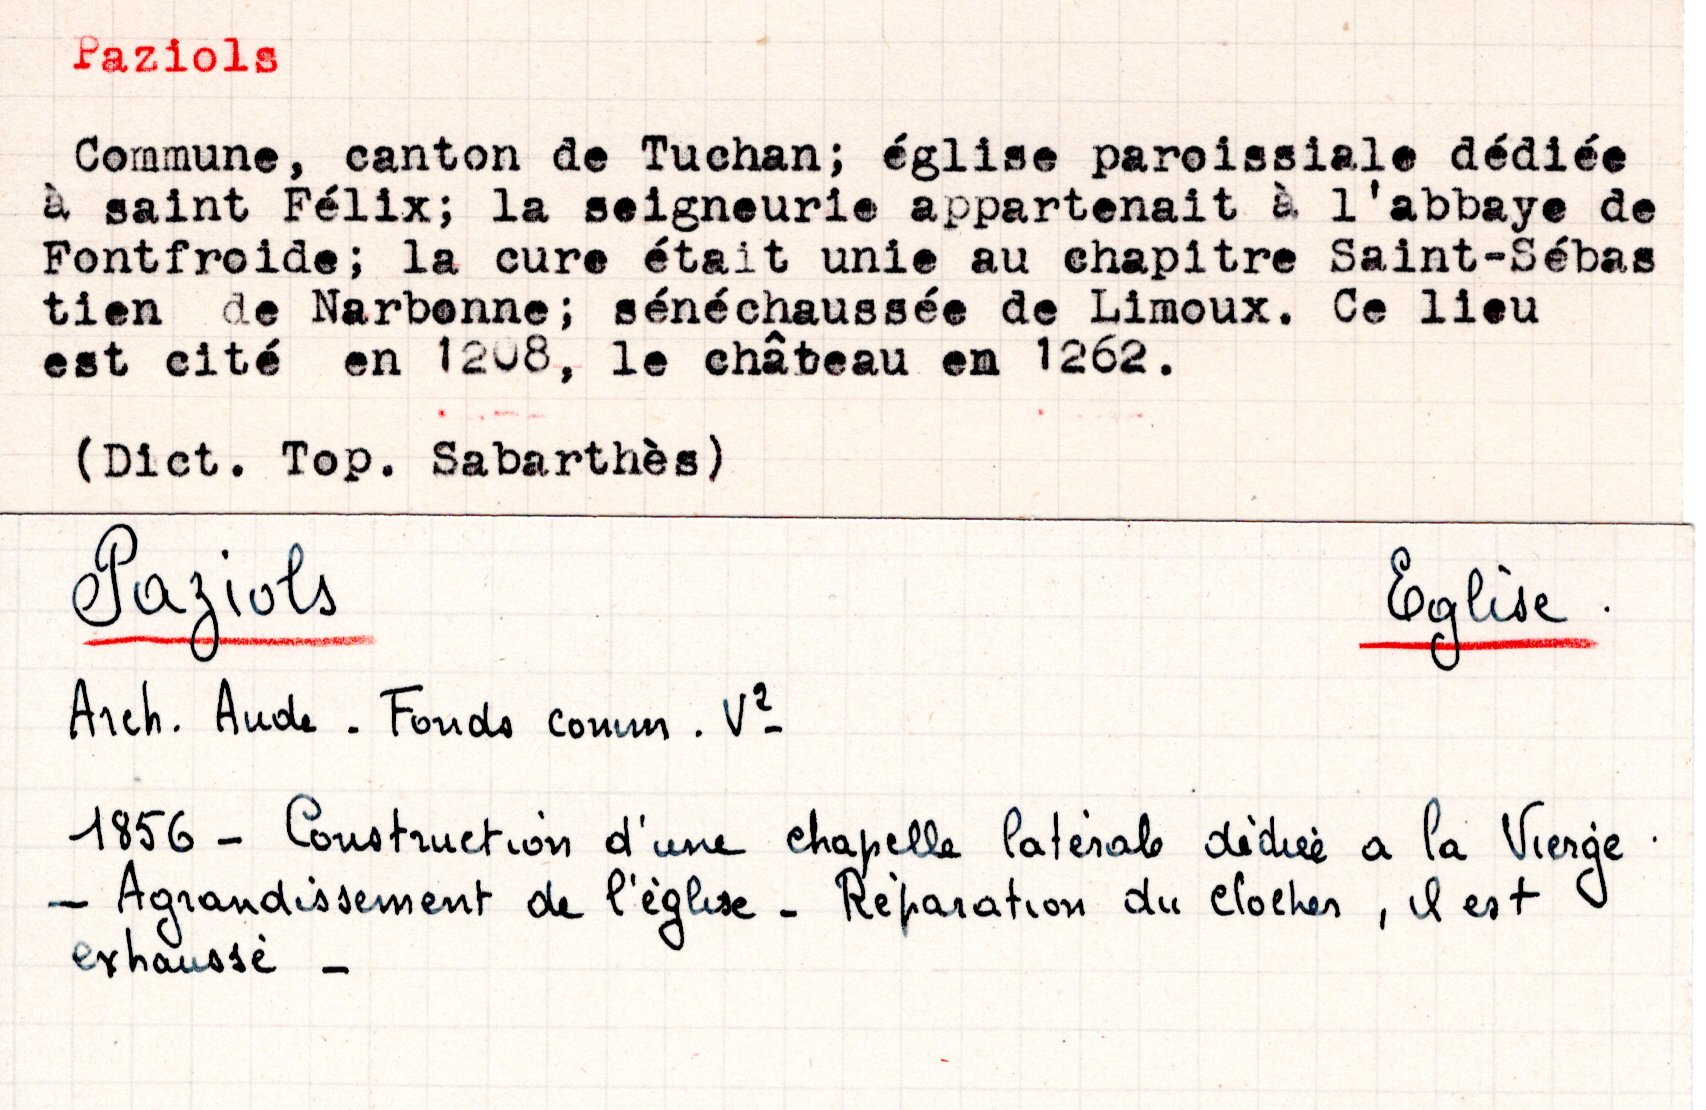 Paziols
Commune, canton de Tuchan; église paroissiale dédiée
à saint Félix; la seigneurie appartenait à l'abbaye de
Fontfroide; la cure était unie au chapitre Saint-Sébas
tien de Narbonne; sénéchaussée de Limoux. Ce lieu
est cité en 1208, le château en 1262.
(Dict. Top. Sabarthès)
Paziols Eglise.
Arch. Aude. Fonds comm. V2
1856 - Construction d'une chapelle latérale dédiée a la Vierge.
- Agrandissement de l'église - Réparation du clocher, il est
exhaussé -